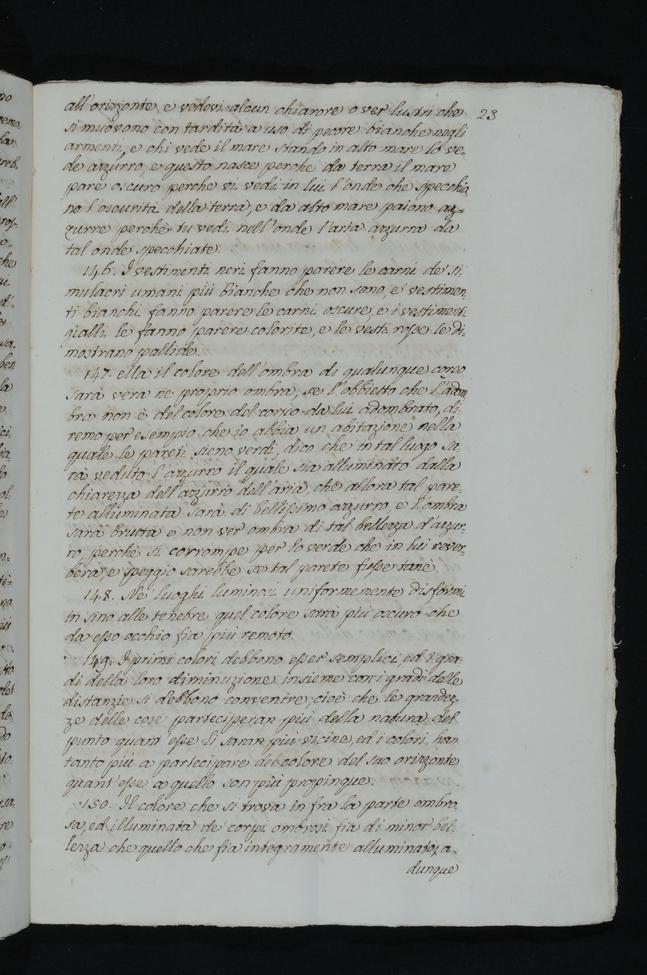 23
all'orizzonte, e vedevi alcun chiarore o ver lustri che
si muovono con tardità a uso di pecore bianche negli
armenti, e chi vede il mare stando in alto mare lo ve-
de azzurro, e questo nasce perche da terra il mare
pare oscuro perche vi vedi in lui l'onde che specchia
no l'oscurità della terra, e da alto mare paiono az-
zurre perchè tu vedi nell'onde l'aria azzurra da
tal onde specchiate.
146. I vestimenti neri fanno parere le carni de' si
mulacri umani più bianche che non sono, e vestimen
ti bianchi fanno parere le carni oscure, e i vestimenti
gialli le fanno parere colorite, e le vesti rosse le di-
mostrano pallide.
147. ella il colore dell'ombra di qualunque corpo
sarà vera ne proprio ombra, se l'obbietto che l'adom
bra non è del colore del corpo da lui adombrato, di-
remo per esempio che io abbia un abitazione nella
quale le pareti sieno verdi, dico che in tal luogo sa
rà veduto l'azzurro il quale sia alluminato dalla
chiarezza dell'azzurro dell'aria, che allora tal pare-
te alluminata sarà di bellissimo azzurro, e l'ombra
sarà brutta e non ver ombra di tal bellezza d'azzur-
ro, perchè si corrompe per lo verde che in lui rever-
bera, e peggio sarebbe se tal parete fusse tanè.
148. Ne luoghi luminosi uniformemente difformi
in sino alle tenebre quel colore sarà più oscuro che
da esso occhio fia più remoto.
149. I primi colori debbono esser semplici, ed i gra-
di della loro diminuzione insieme con i gradi delle
distanzie si debbono convenire, cioè che le grandez-
ze delle cose parteciperan più della natura del
punto quant'esse li saran più vicine, ed i colori han
tanto più a partecipare del colore del suo orizzonte
quant'esse a quello son più propinque.
150. Il colore che si trova in fra la parte ombro
sa, ed illuminata de' corpi ombrosi fia di minor bel-
lezza che quello che fia integramente alluminato, a-
dunque